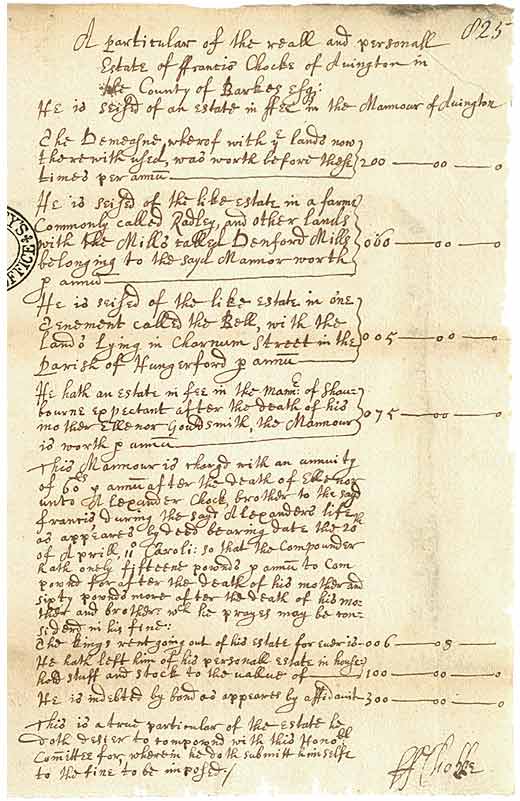 825
A particular of the reall and personall
Estate of ffrancis Chocke of Avington in
the County of Barkes Esqr:
He is seised of an estate in ffee in the Mannour of Avington
The Demeasne wherof with ye lands now
therewith used, was worth before these
times per annu 200 — 00 — 0
He is seised of the like Estate in a farme
Commonly called Radley, and other lands
with the Mills called Denford Mills
belonging to the sayd Mannor worth
p annu 060 — 00 — 0
He is seised of the like Estate in one
Tenement called the Bell, with the
lands Lying in Charnum Street in the
Parish of Hungerford p annu 005 — 00 — 0
He hath an Estate in fee in the Mannr: of Shau=
bourne expectant after the death of his
mother Ellenor Goudsmith, the Mannour
is worth p annu 075 — 00 — 0
This Mannour is chargd with an annuity
of 60l p annu after the death of Ellenor
unto Alexander Chock brother to the sayd
francis during the sayd Alexanders life
as appeares by deed bearing date the 20th
of Aprill, 11 Caroli: so that the Compounder
hath onely fifteene pounds p annu to Com
pound for after the death of his mother and
sixty pounds more after the death of his mo=
ther and brother: wch he prayes may be con=
siderd in his fine:
The Kings rent going out of his Estate for ever is 006 — 08
He hath left him of his personall Estate in house
hold stuff and stock to the vallue of 100 — 00 — 0
He is indebted by bond as appeares by affidavit 300 — 00 — 0
This is a true particular of the Estate he
doth desier to compownd with this Honoll
Committee for, wherein he doth submitt himselfe
to the fine to be imposed:/
ff Chokke
OFFICE